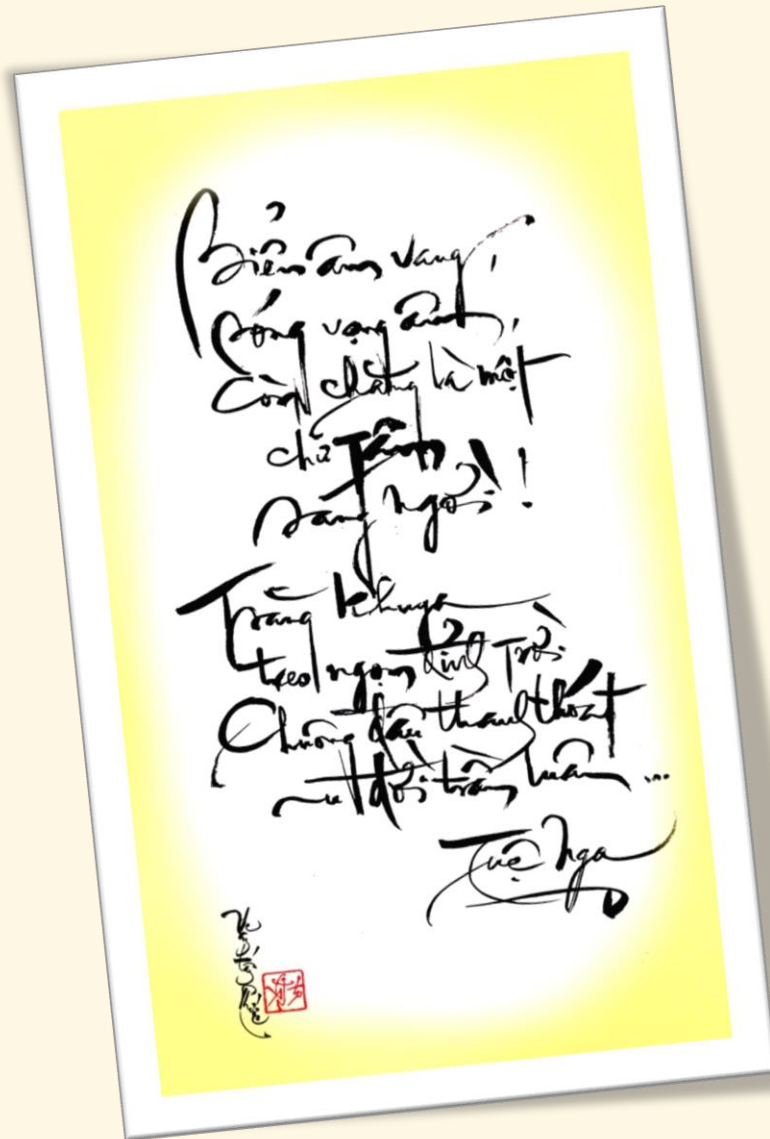 Biển âm vang,
Sóng vọng âm,
Còn chăng là một
chữ Tâm
sáng ngời!
Trăng khuya
treo ngọn đỉnh Trời
Chuông đâu thanh thoát
ru đời trầm luân ...
Tuệ Nga